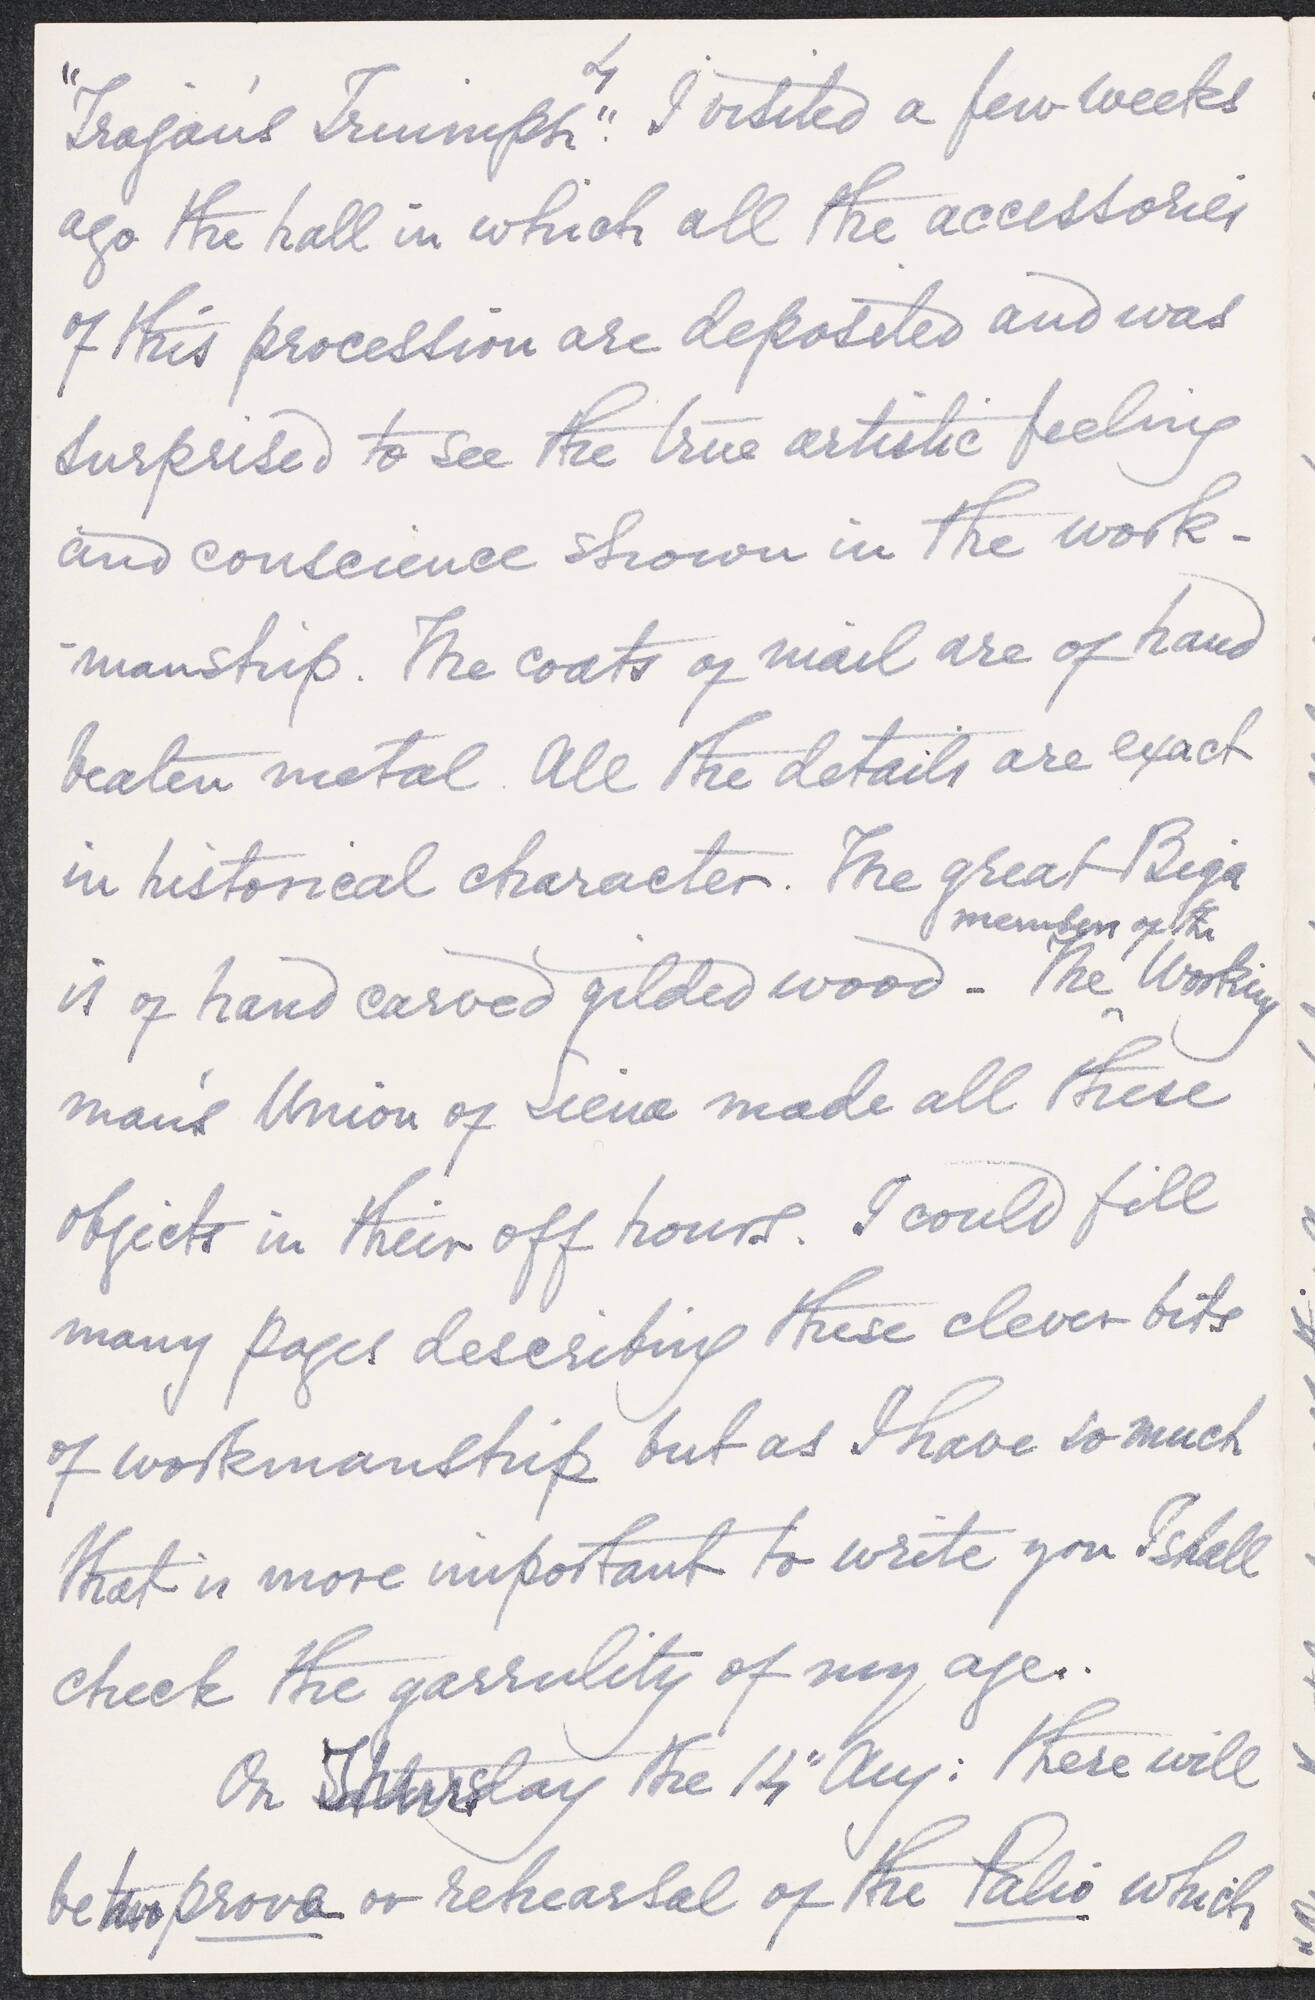 "Trajan's Triumph". I visited a few weeks
ago the hall in which all the accessories
of this procession are deposited and was
surprised to see the true artistic feeling
and conscience shown in the work-
-manship. The coats of mail are of hand
beaten metal. All the details are exact
in historical character. The great Biga
members of the
is of hand carved gilded wood - The ^ Working
man's Union of Siena made all these
objects in their off hours. I could fill
many pages describing these clever bits
of workmanship but as I have so much
that is more important to write you I shall
check the garrulity of my age..
On Thursday the 14" Aug: there will
be two prova or rehearsal of the Palio which